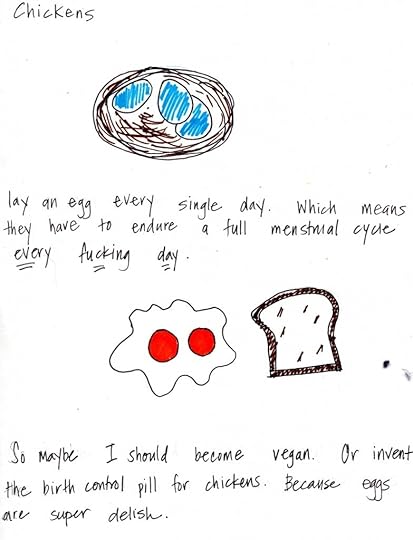 Chickens
lay an egg every single day. Which means
they have to endure a full menstrual cycle
every fucking day.
So maybe I should become vegan. Or invent
the birth control pill for chickens. Because eggs
are super delish.